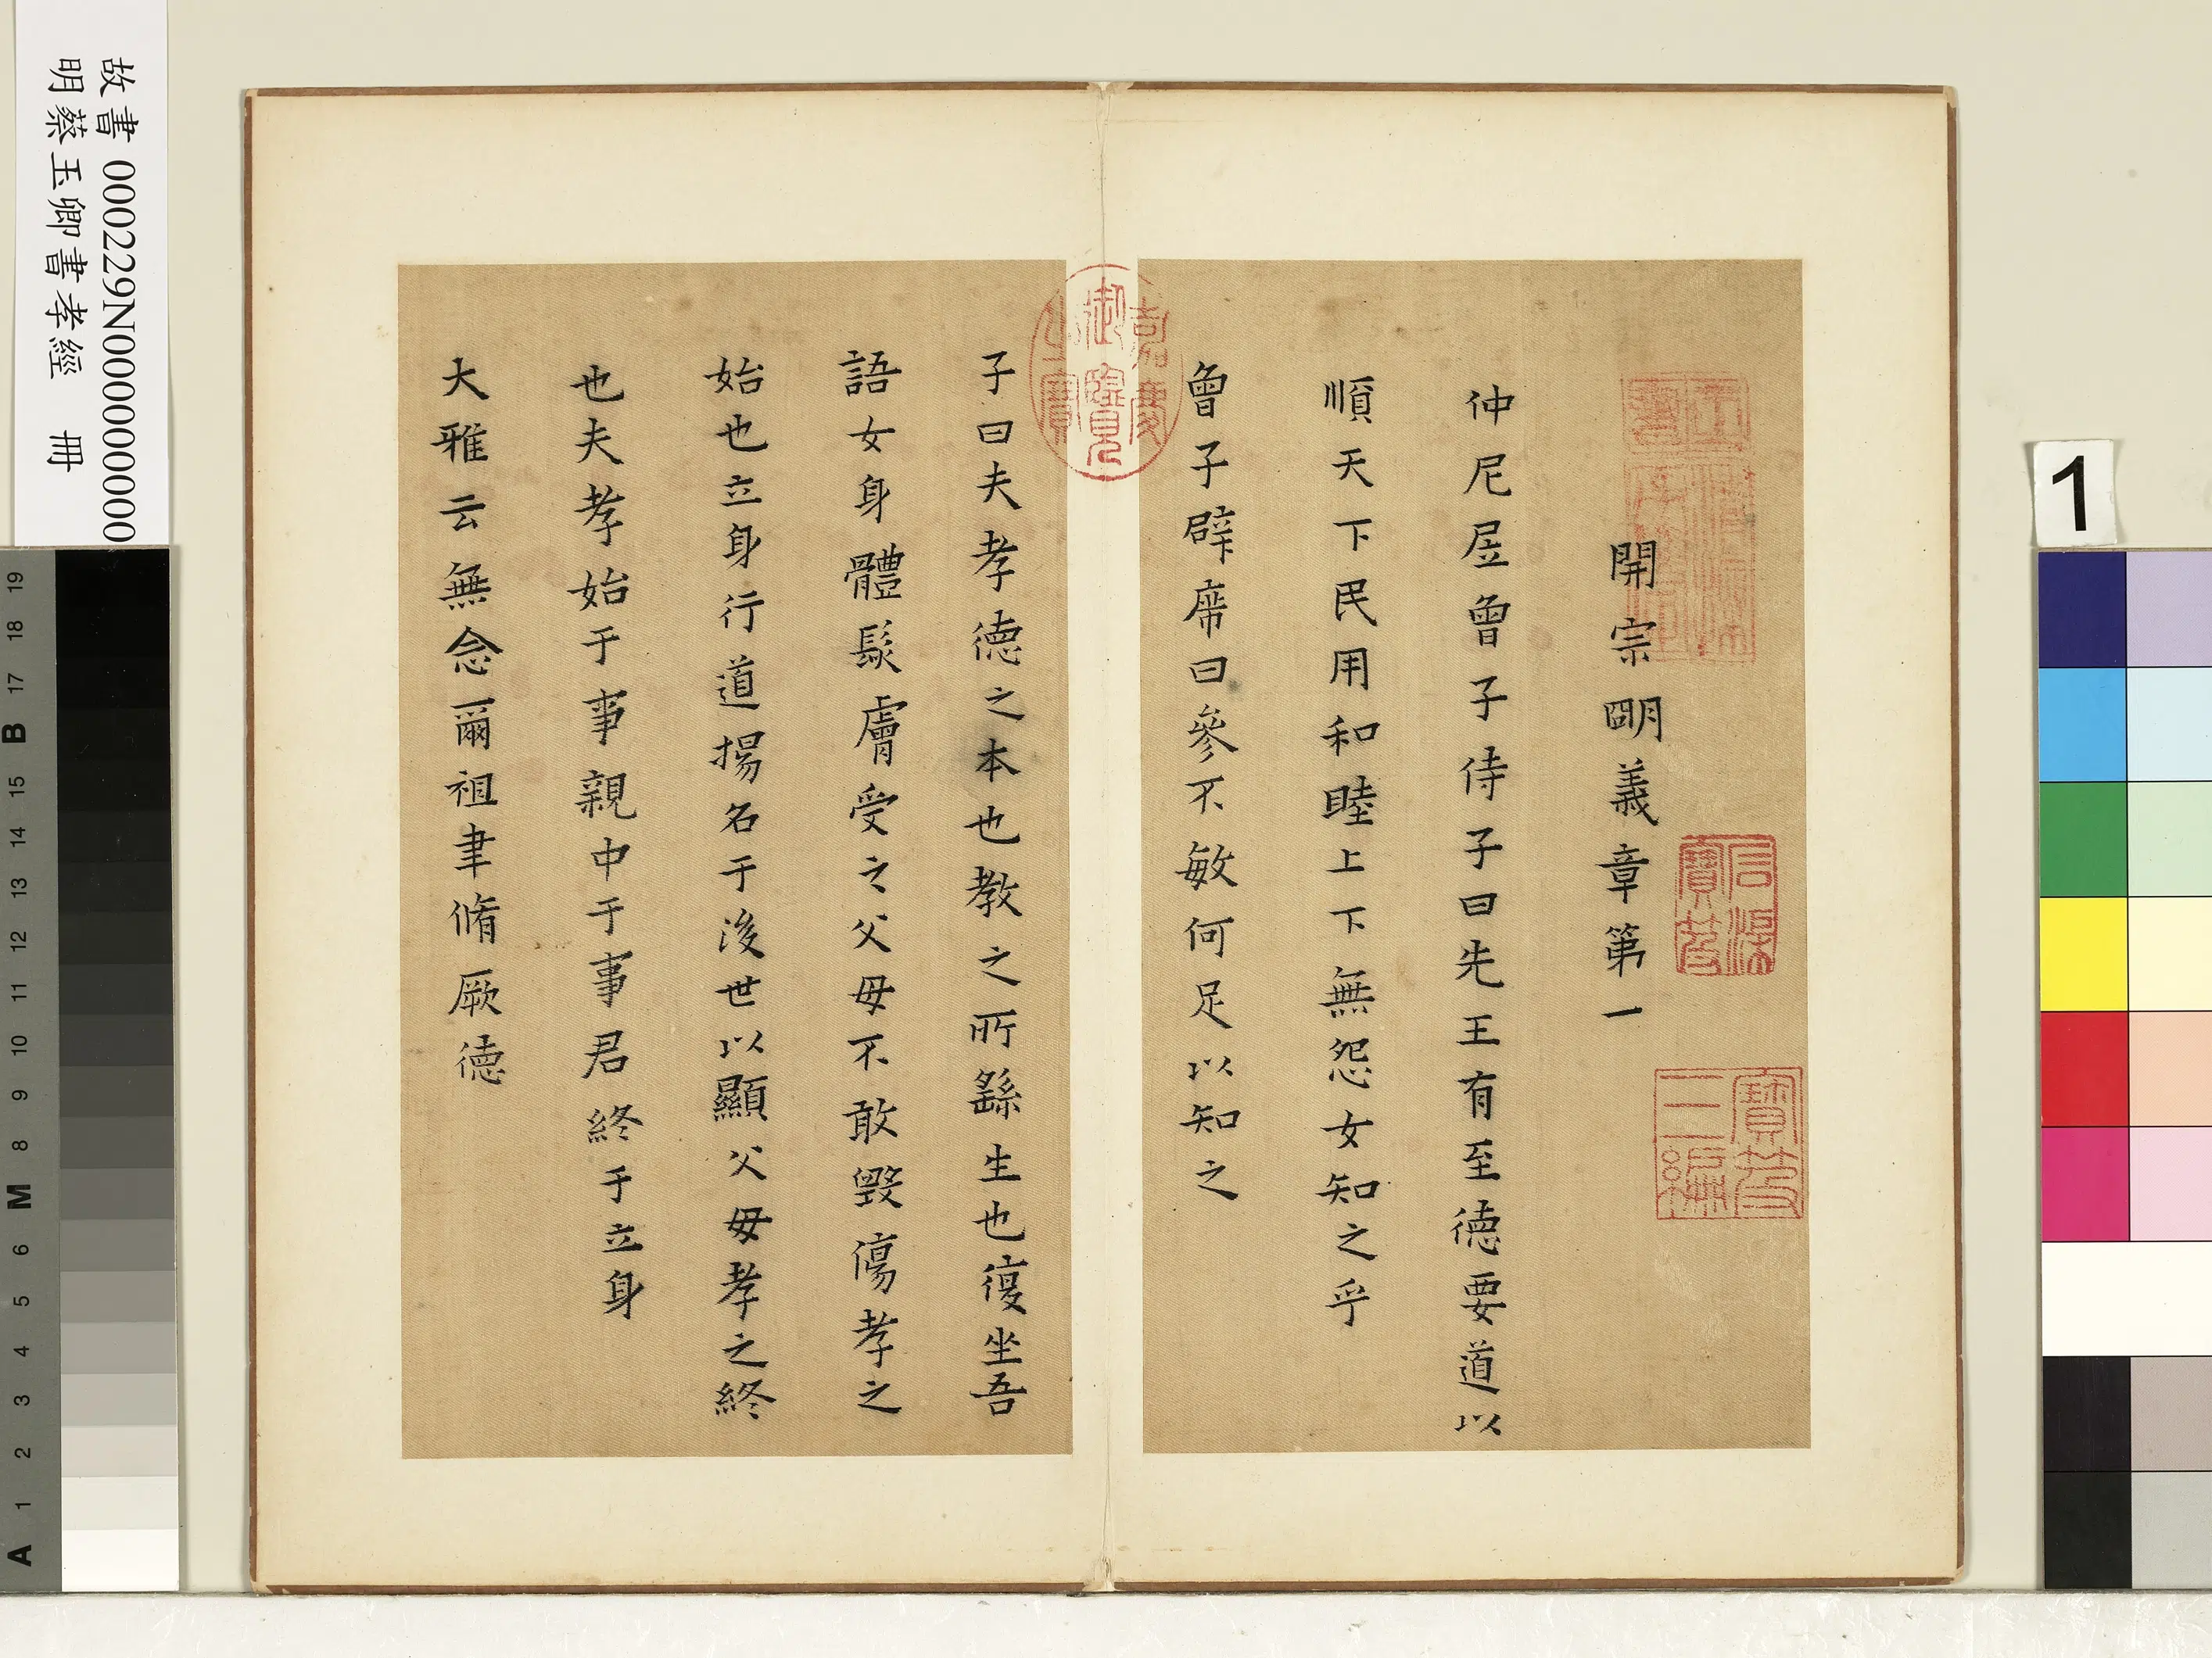 開宗明義章第一
仲尼凥曾子侍子曰先王有至德要道以
順天下民用和睦上下無怨女知之乎
曾子辟席曰參不敏何足以知之
子曰夫孝德之本也教之所繇生也復坐吾
語女身體髮膚受之父母不敢毀傷孝之
始也立身行道揚名于後世以顯父母孝之終
也夫孝始于事親中于事君終于立身
大雅云無念爾祖聿脩厥德
嘉慶御覽之寶
石渠寶笈
寶笈三編
故書 000229N000000000
明蔡玉卿書孝經 冊
1
19
18
17
B
15
14
13
12
11
10
9
8
M
6
5
4
3
2
1
A